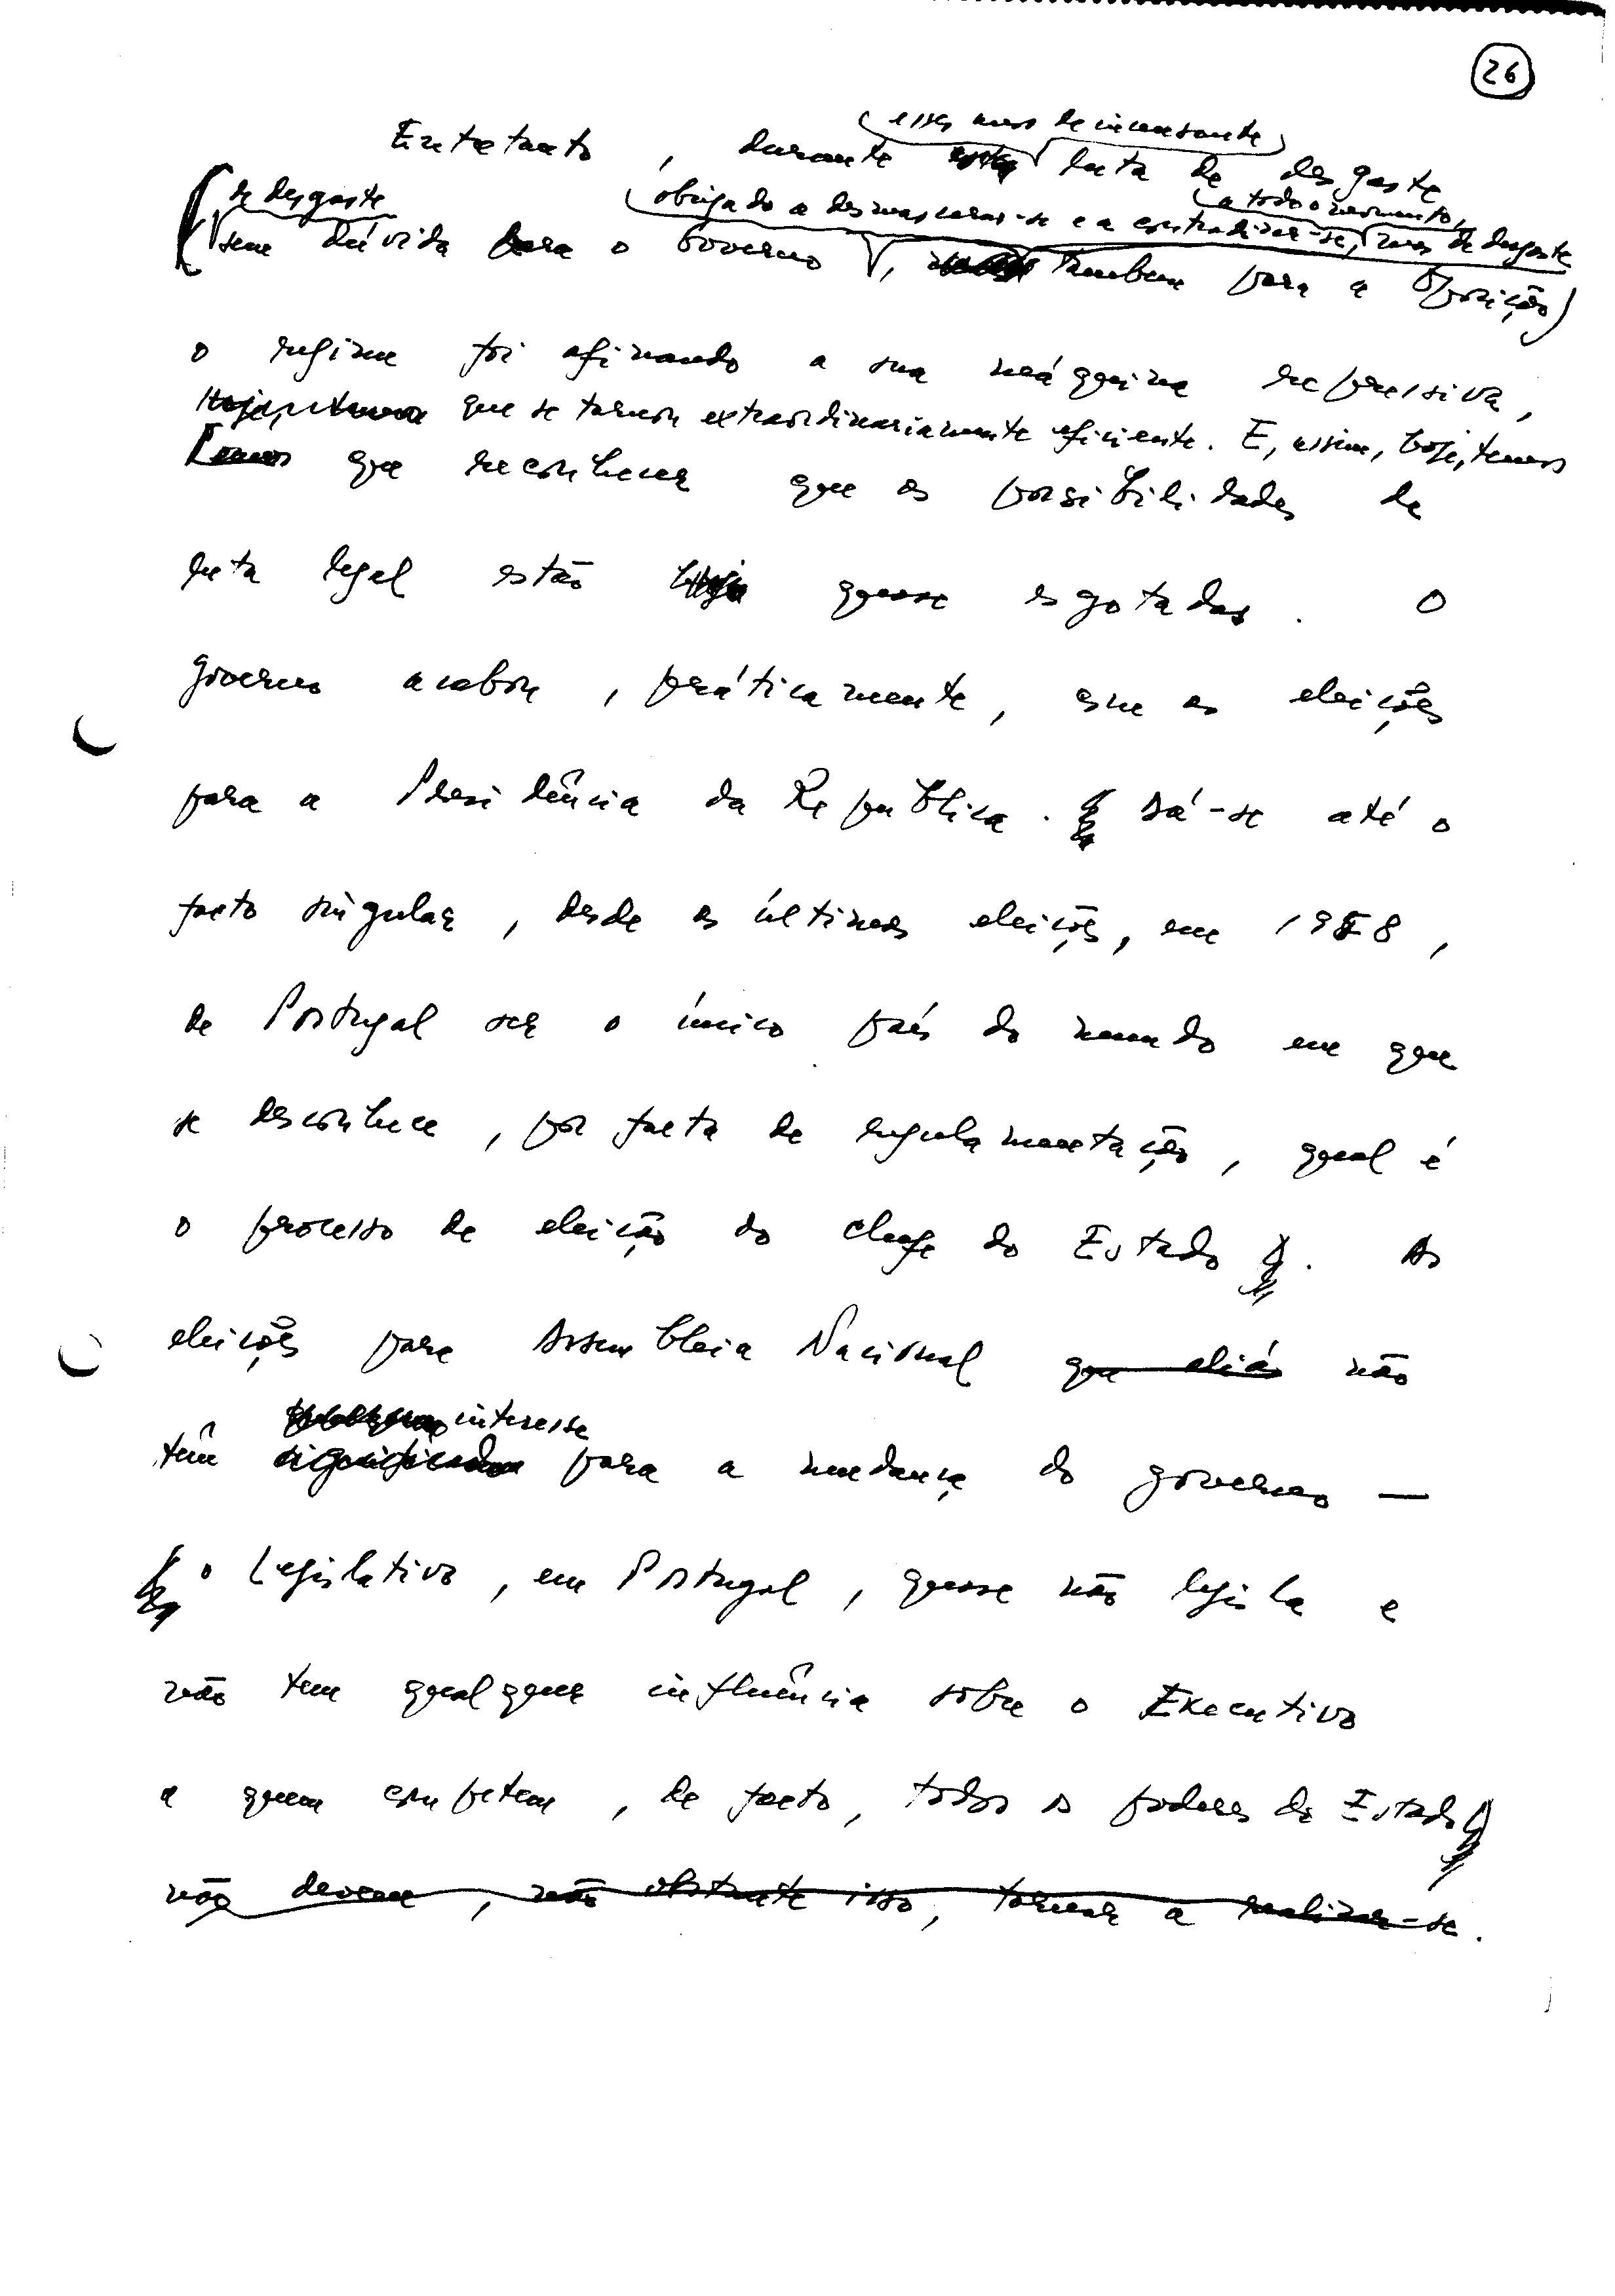 26
esses anos de incessante
Entretanto, durante luta de desgaste
de desgaste obrigado a desmascarar-se e a contradizer-se, a todo o momento, mas de desgaste
(sem dúvida para o Governo, também para a Oposição)
o regime foi afinando a sua máquina repressiva,
que se tornou extraordinariamente eficiente. E, assim, hoje, temos
que reconhecer que as possibilidades de
luta legal estão quase esgotadas. O
governo acabou, práticamente, com as eleições
para a Presidência da Republica. Dá-se até o
facto singular, desde as últimas eleições, em 1958,
de Portugal ser o único país do mundo em que
se desconhece, por falta de regulamentação, qual é
o processo de eleição do chefe do Estado. As
eleições para Assembleia Nacional que aliás não
interesse
têm significado para a mudança do governo —
o Legislativo, em Portugal, quase não legisla e
não tem qualquer influência sobre o Executivo
a quem competem, de facto, todos os poderes do Estado
não devem, não obstante isso, tornar a realizar-se.